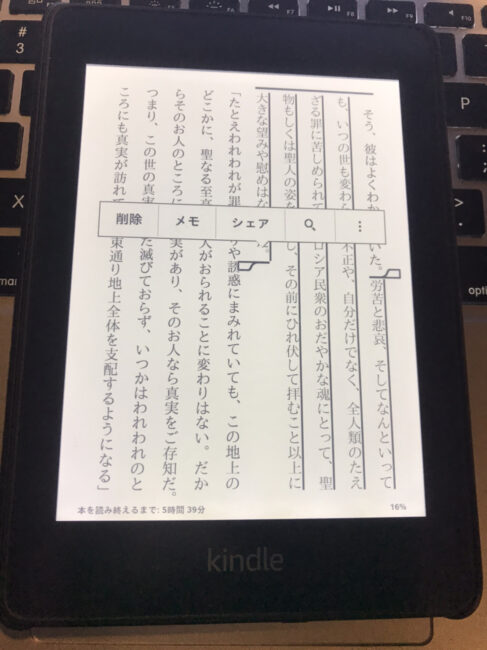 そう、彼はよくわか いた。労苦と悲哀、そしてなんといって
も、いつの世も変わら 不正や、自分だけでなく、全人類のたえ
ざる罪に苦しめられて ロシア民衆のおだやかな魂にとって、聖
物もしくは聖人の姿を し、その前にひれ伏して拝むこと以上に
大きな望みや慰めはな
「たとえわれわれが罪 や誘惑にまみれていても、この地上の
どこかに、聖なる至高 人がおられることに変わりはない。だか
らそのお人のところに 実があり、そのお人なら真実をご存知だ。
つまり、この世の真実 た滅びておらず、いつかはわれわれのと
ころにも真実が訪れて 束通り地上全体を支配するようになる」
削除 メモ シェア
本を読み終えるまで: 5時間 39分 16%
kindle
#
3
X
P
F7
F8
F9
F10